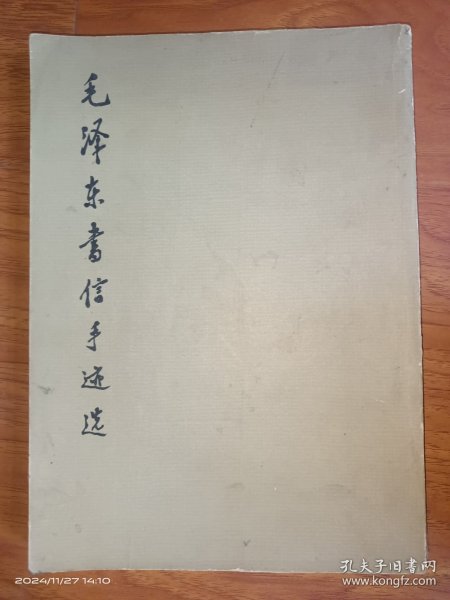 毛泽东书信手迹选
2024/11/27 14:10
孔夫子旧书网
www.kongfz.com